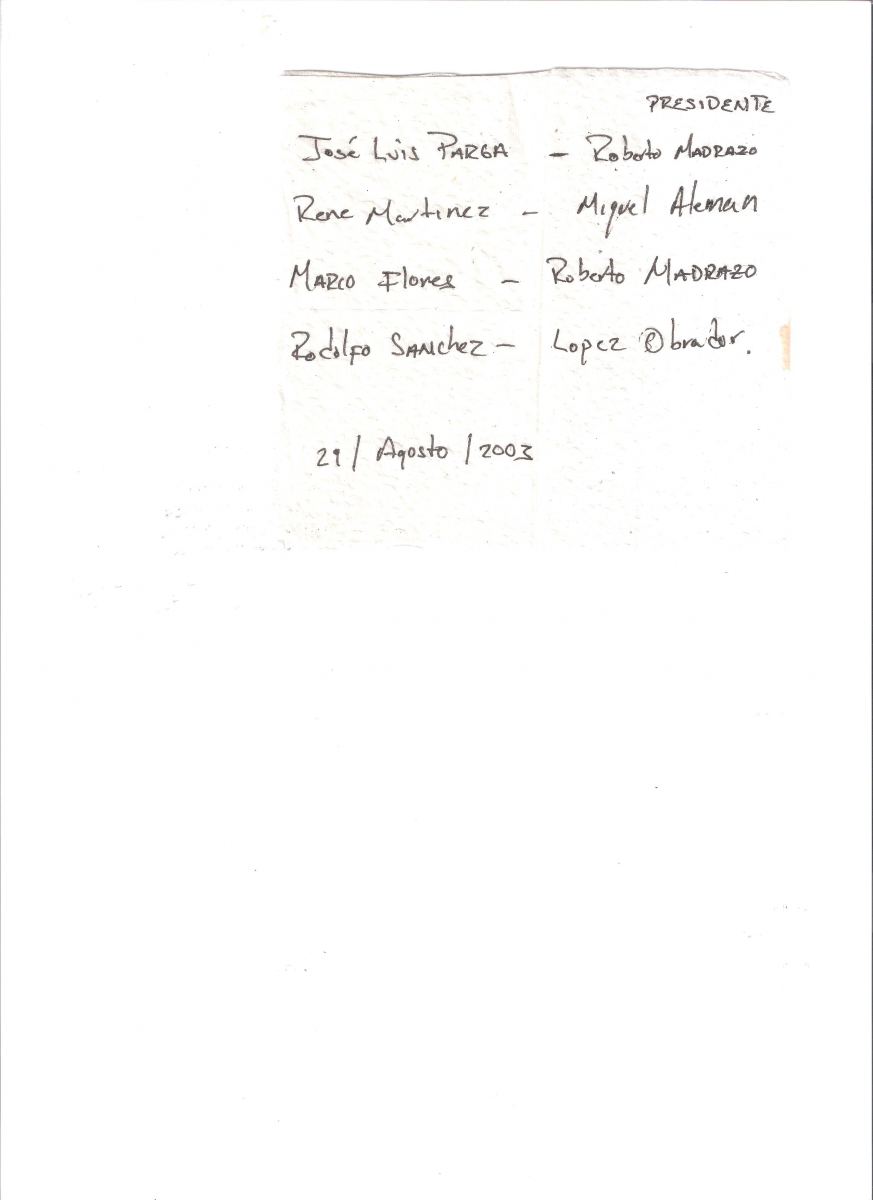 PRESIDENTE
José Luis PARGA - Roberto MADRAZO
Rene Martinez - Miguel Aleman
MARCO Flores - Roberto MADRAZO
Rodolfo SANchez - Lopez Obrador.
29 / Agosto / 2003